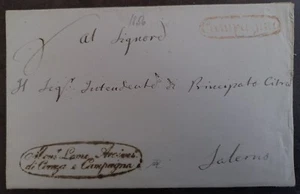 Campagna
Al Signore
Il Sigʳ. Intendente di Principato Citra
Monʳ. Lupis Arcivesᵒ.
di Conza e Campagna
Salerno